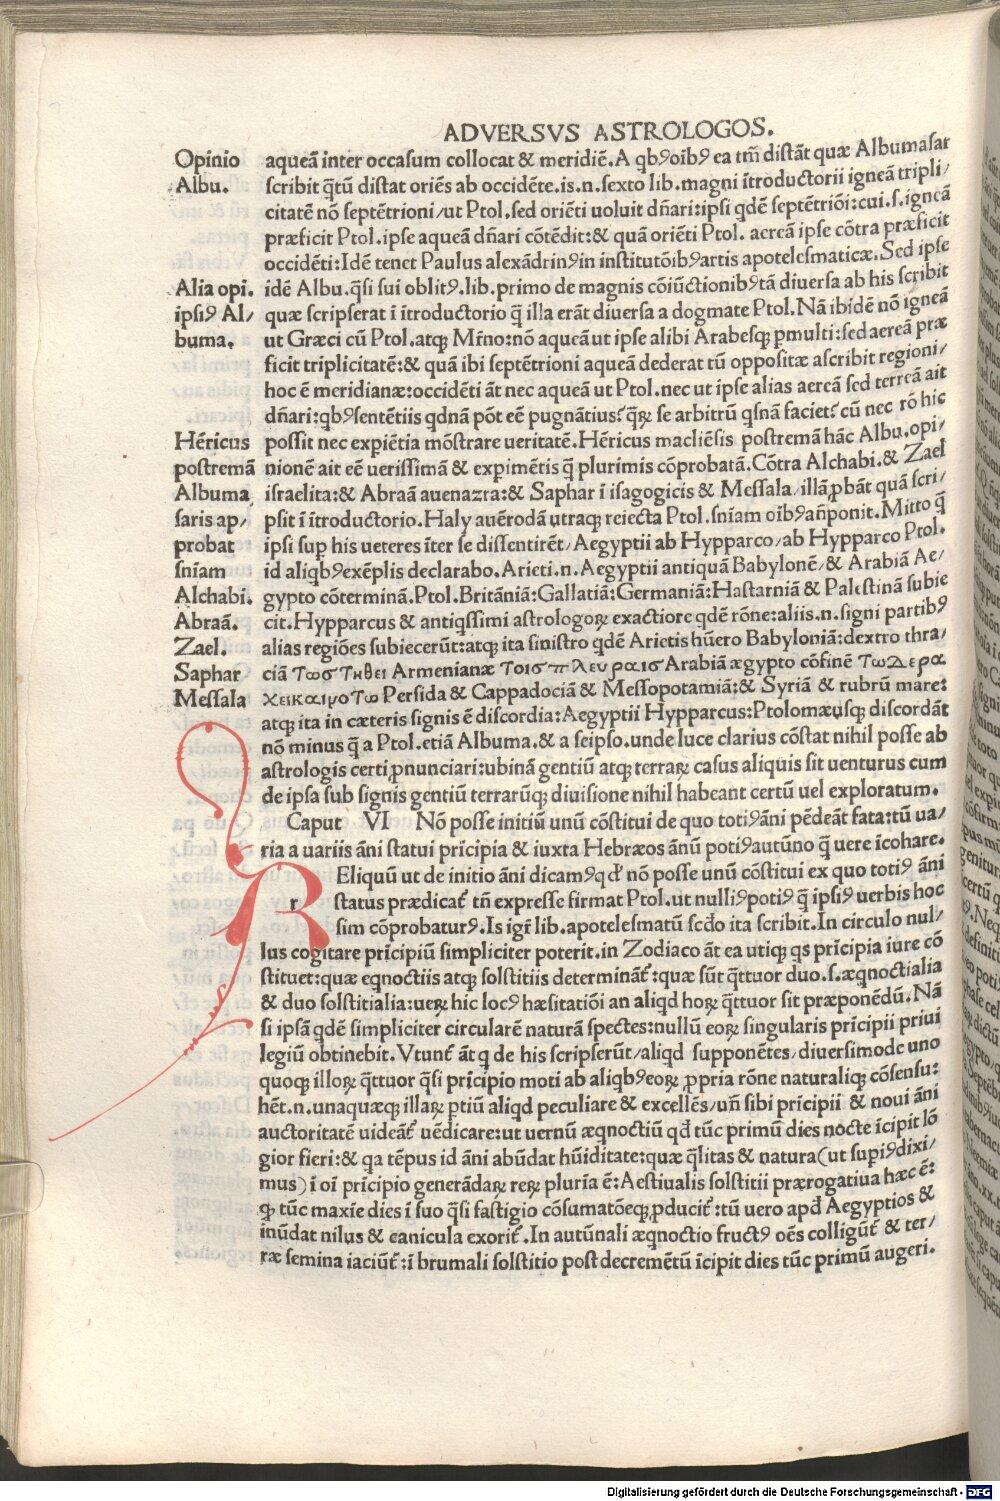 ADVERSVS ASTROLOGOS.
Opinio
Albu.
Alia opi.
ipsiꝰ Al/
buma.
Héricus
postremā
Albuma
saris ap/
probat
sniam
Alchabi.
Abraā.
Zael.
Saphar
Messala
aqueā inter occasum collocat & meridiē. A qbꝰoibꝰ ea tm̄ distāt quæ Albumasar
scribit q̄tū distat oriēs ab occidēte.is.n.sexto lib.magni ītroductorii igneā tripli/
citatē nō septētrioni/ut Ptol.sed oriēti uoluit dn̄ari:ipsi qdē septētriōi:cui.s.igneā
præficit Ptol.ipse aqueā dn̄ari cōtēdit:& quā oriēti Ptol. aereā ipse cōtra præficit
occidēti:Idē tenet Paulus alexādrinꝰin institutōibꝰartis apotelesmaticæ.Sed ipse
idē Albu.q̄si sui oblitꝰ.lib.primo de magnis cōiūctionibꝰtā diuersa ab his scribit
quæ scripserat ī ītroductorio q̄ illa erāt diuersa a dogmate Ptol.Nā ibidē nō igneā
ut Græci cū Ptol.atqꝫ Mr̄no:nō aqueā ut ipse alibi Arabesqꝫ ꝑmulti:sed aereā præ
ficit triplicitatē:& quā ibi septētrioni aqueā dederat tū oppositæ ascribit regioni/
hoc ē meridianæ:occidēti āt nec aqueā ut Ptol.nec ut ipse alias aereā sed terreā ait
dn̄ari:qbꝰsentētiis qdnā pōt eē pugnātius? q̄ꝝ se arbitrū qsnā faciet? cū nec rō hic
possit nec expiētia mōstrare ueritatē.Héricus macliēsis postremā hāc Albu.opi/
nionē ait eē uerissimā & expimētis q̄ plurimis cōprobatā.Cōtra Alchabi.& Zael
israelita:& Abraā auenazra:& Saphar ī isagogicis & Messala/illā ꝓbāt quā scri/
psit ī ītroductorio.Haly auērodā utraqꝫ reiecta Ptol.sniam oībꝰan̄ponit.Mitto q̄
ipsi sup his ueteres īter se dissentirēt/Aegyptii ab Hypparco/ab Hypparco Ptol.
id aliqbꝰexēplis declarabo.Arieti.n.Aegyptii antiquā Babylonē/& Arabiā Ae/
gypto cōterminā.Ptol.Britāniā:Gallatiā:Germaniā:Hastarniā & Palestinā subie
cit.Hypparcus & antiqssimi astrologoꝝ exactiore qdē rōne:aliis.n.signi partibꝰ
alias regiōes subiecerūt:atqꝫ ita sinistro qdē Arietis hūero Babyloniā:dextro thra/
ciā τωσ τηθει Armenianæ τοισ πλευραισ Arabiā ægypto cōfinē τωδερα
χεικαιροτω Persida & Cappadociā & Messopotamiā:& Syriā & rubrū mare:
atqꝫ ita in cæteris signis ē discordia:Aegyptii Hypparcus:Ptolomæusqꝫ discordāt
nō minus q̄ a Ptol.etiā Albuma.& a seipso.unde luce clarius cōstat nihil posse ab
astrologis certi ꝓnunciari:ubinā gentiū atqꝫ terraꝝ casus aliquis sit uenturus cum
de ipsa sub signis gentiū terrarūqꝫ diuisione nihil habeant certū uel exploratum.
Caput VI Nō posse initiū unū cōstitui de quo totiꝰāni pēdeāt fata:tū ua/
ria a uariis āni statui prīcipia & iuxta Hebræos ānū potiꝰautūno q̄ uere īcohare.
R Eliquū ut de initio āni dicamꝰq đ nō posse unū cōstitui ex quo totiꝰ āni
r status prædicaƭ tn̄ expresse firmat Ptol.ut nulliꝰpotiꝰ q̄ ipsiꝰ uerbis hoc
sim cōprobaturꝰ.Is igr̄ lib.apotelesmatū scđo ita scribit.In circulo nul/
lus cogitare prīcipiū simpliciter poterit.in Zodiaco āt ea utiqꝫ qs prīcipia iure cō
stituet:quæ eqnoctiis atqꝫ solstitiis determināƭ:quæ sūt q̄ttuor duo.s.æqnoctialia
& duo solstitialia:ueꝝ hic locꝰ hæsitatiōi an aliqd hoꝝ q̄ttuor sit præponēdū.Nā
si ipsā qdē simpliciter circularē naturā spectes:nullū eoꝝ singularis prīcipii priui
legiū obtinebit.Vtunƭ āt q de his scripserūt/aliqd supponētes/diuersimode uno
quoqꝫ illoꝝ q̄ttuor q̄si prīcipio moti ab aliqbꝰeoꝝ ꝓpria rōne naturaliqꝫ cōsensu:
hēt.n.unaquæqꝫ illaꝝ ptiū aliqd peculiare & excellēs/un̄ sibi prīcipii & noui āni
auctoritatē uideāƭ uēdicare:ut uernū æqnoctiū qđ tūc primū dies nocte īcipit lō
gior fieri:& qa tēpus id āni abūdat hūiditate:quæ q̄litas & natura(ut supiꝰdixi/
mus)ī oī prīcipio generādaꝝ reꝝ plurīa ē:Aestiualis solstitii prærogatiua hæc ē:
qꝫ tūc maxīe dies ī suo q̄si fastigio cōsumatōeqꝫ ꝓduciƭ:tū uero apđ Aegyptios &
inūdat nilus & canicula exoriƭ.In autūnali æqnoctio fructꝰ oēs colligūƭ & ter/
ræ semina iaciūƭ:ī brumali solstitio post decremētū īcipit dies tūc primū augeri.
Digitalisierung gefördert durch die Deutsche Forschungsgemeinschaft - DFG